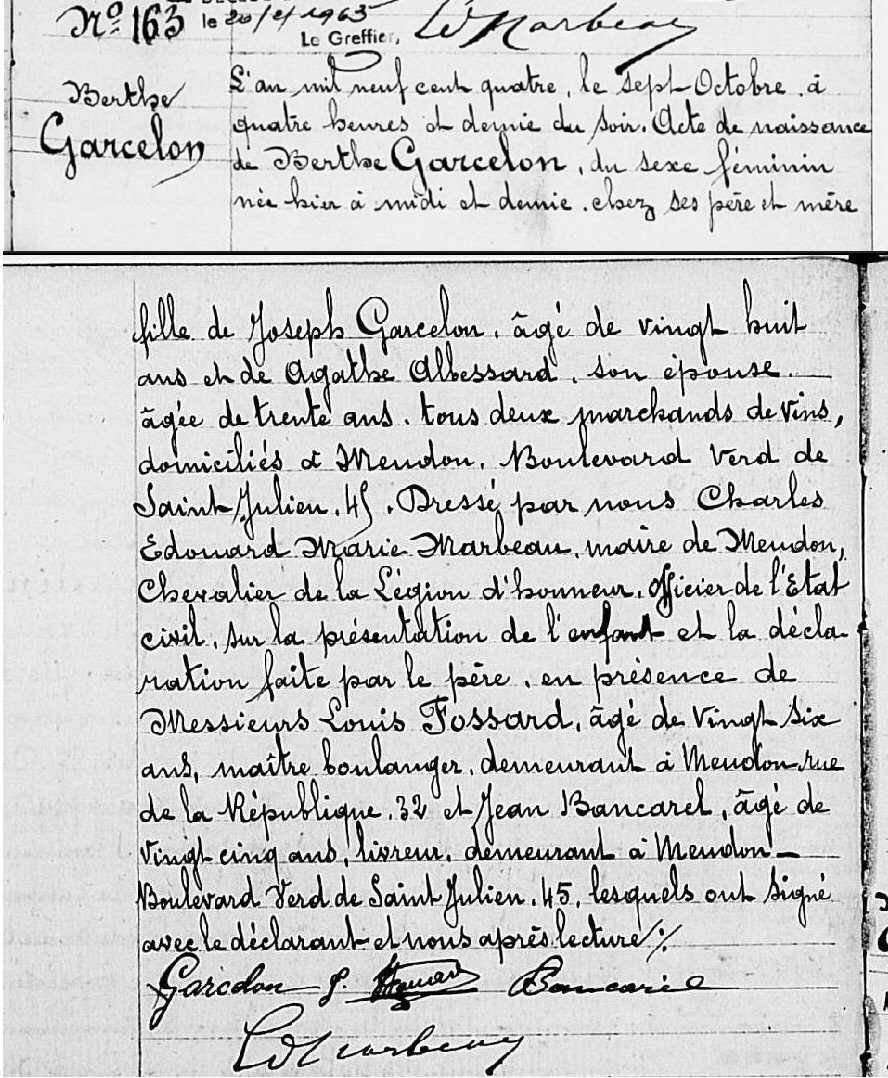 No 163 le 20/2/1963
Le Greffier, Ed Marbeau
Berthe
Garcelon
L'an mil neuf cent quatre, le sept Octobre, à
quatre heures et demie du soir. Acte de naissance
de Berthe Garcelon, du sexe féminin
née hier à midi et demie, chez ses père et mère
fille de Joseph Garcelon, âgé de vingt huit
ans et de Agathe Albessard, son épouse
âgée de trente ans, tous deux marchands de vins,
domiciliés à Meudon, Boulevard Verd de
Saint Julien, 45, Dressé par nous Charles
Edouard Marie Marbeau, maire de Meudon,
Chevalier de la Légion d'honneur, Officier de l'Etat
civil, sur la présentation de l'enfant et la décla
ration faite par le père, en présence de
Messieurs Louis Fossard, âgé de vingt six
ans, maître boulanger, demeurant à Meudon, rue
de la République, 32 et Jean Bancarel, âgé de
vingt cinq ans, livreur, demeurant à Meudon
Boulevard Verd de Saint Julien, 45, lesquels ont signé
avec le déclarant et nous après lecture ./.
Garcelon L. Bancarel
Ed Marbeau